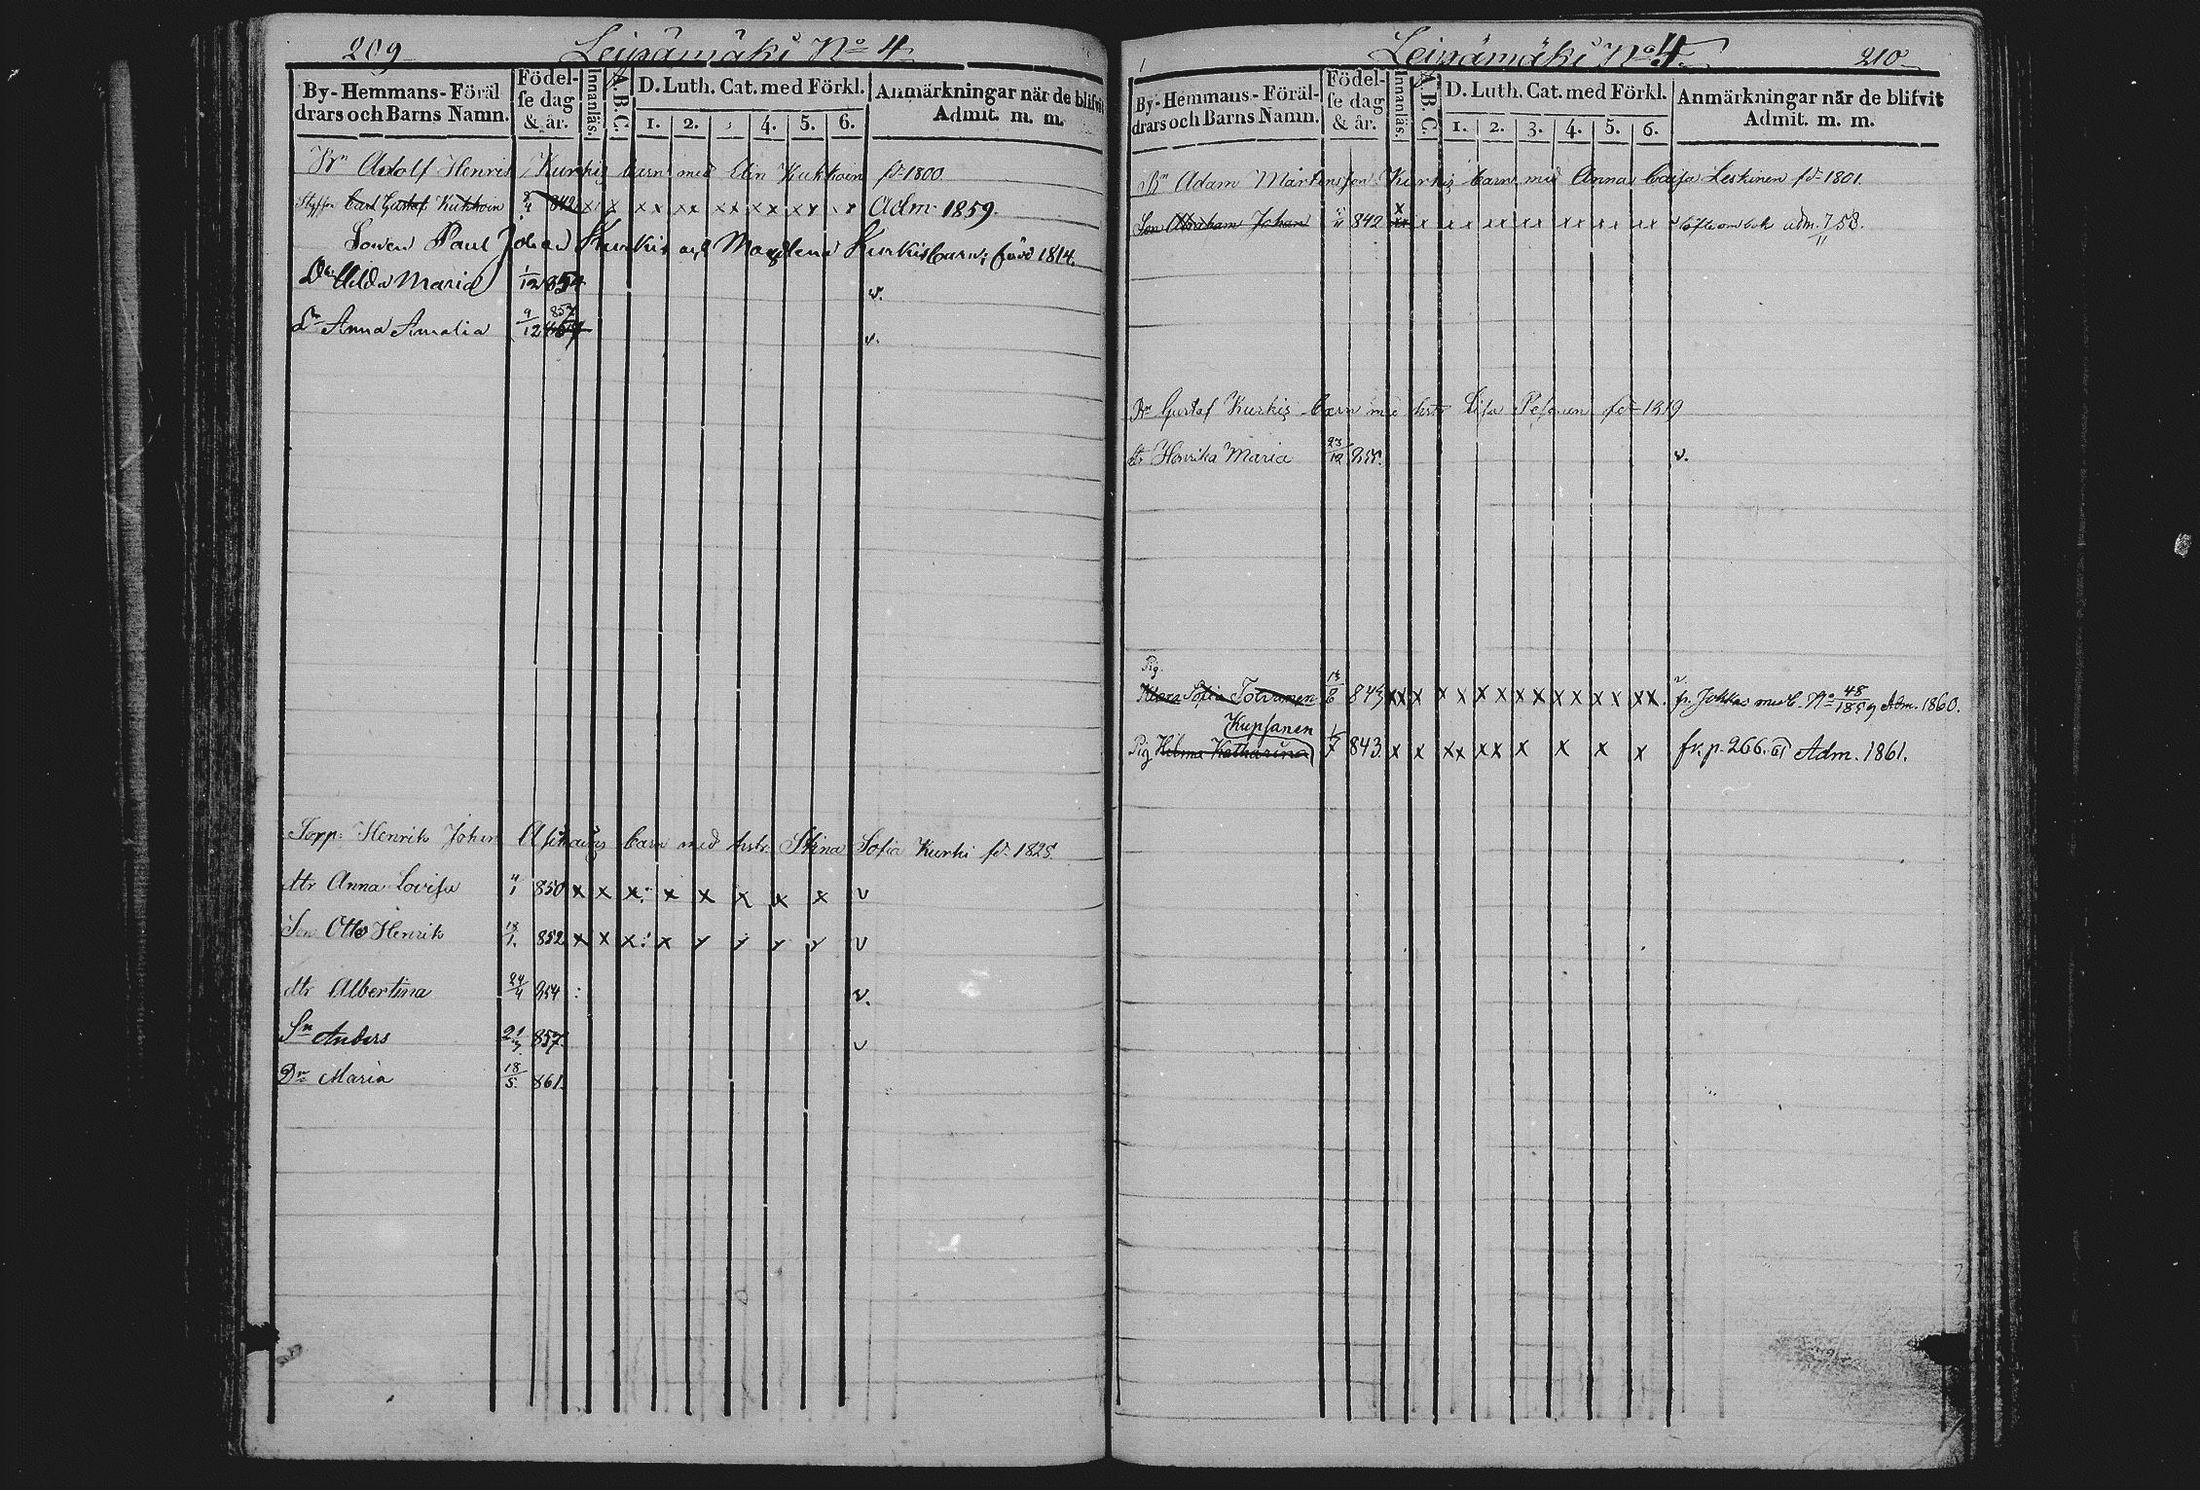 209 Leipämäki No 4
By-Hemmans-Föräl
drars och Barns Namn.
Födel-
se dag
& år.
Innanläs.
A.B.C.
D. Luth. Cat. med Förkl.
1. 2. 4. 5. 6.
Anmärkningar när de blifvit
Admit. m. m.
Bn Adolf Henric Kurkis barn med Elin Kukkoin fd 1800.
Carl Gustaf Kukkoin 842 x x x x x x x x x x x x x Adm. 1859.
Sonen Paul Johan Kurkis och Magdlena Kurkis barn; född 1814.
Dr Hilda Maria 1/12 854 v.
Dr Anna Amalia 9/12 857 v.
Henrik Johan barn med hstr. Stina Sofia Kurki fd. 1825.
dtr Anna Lovisa 850 x x x x x x x x v
Son Otto Henrik 18/1. 852 x x x x v
dtr Albertina 24/4 854 v.
Sn Anders 21/3. 857. v
Dr Maria 18/5. 861.
Leipämäki No 4. 210
By-Hemmans-Föräl-
drars och Barns Namn.
Födel-
se dag
& år.
Innanläs.
A.B.C.
D. Luth. Cat. med Förkl.
1. 2. 3. 4. 5. 6.
Anmärkningar när de blifvit
Admit. m. m.
Bn Adam Mårtensson Kurkis barn med Anna Caisa Leskinen fd 1801.
Son Abraham Johan 842 x x x x x x x x x x x x adm. 58.
Bn Gustaf Kurkis barn med hstr Lisa Pesonen fd 1819
dr Henrika Maria 23/12 855. v.
Pig.
Klara Sofia Toivanen 13/8 843 xx x x x x x x x x x x x x x. fr. Jokkas med b. No 48/1859 Adm. 1860.
Kupsanen
Pig Helena Katharina 843. x x xx xx x x x x fr. p. 266. 61 Adm. 1861.